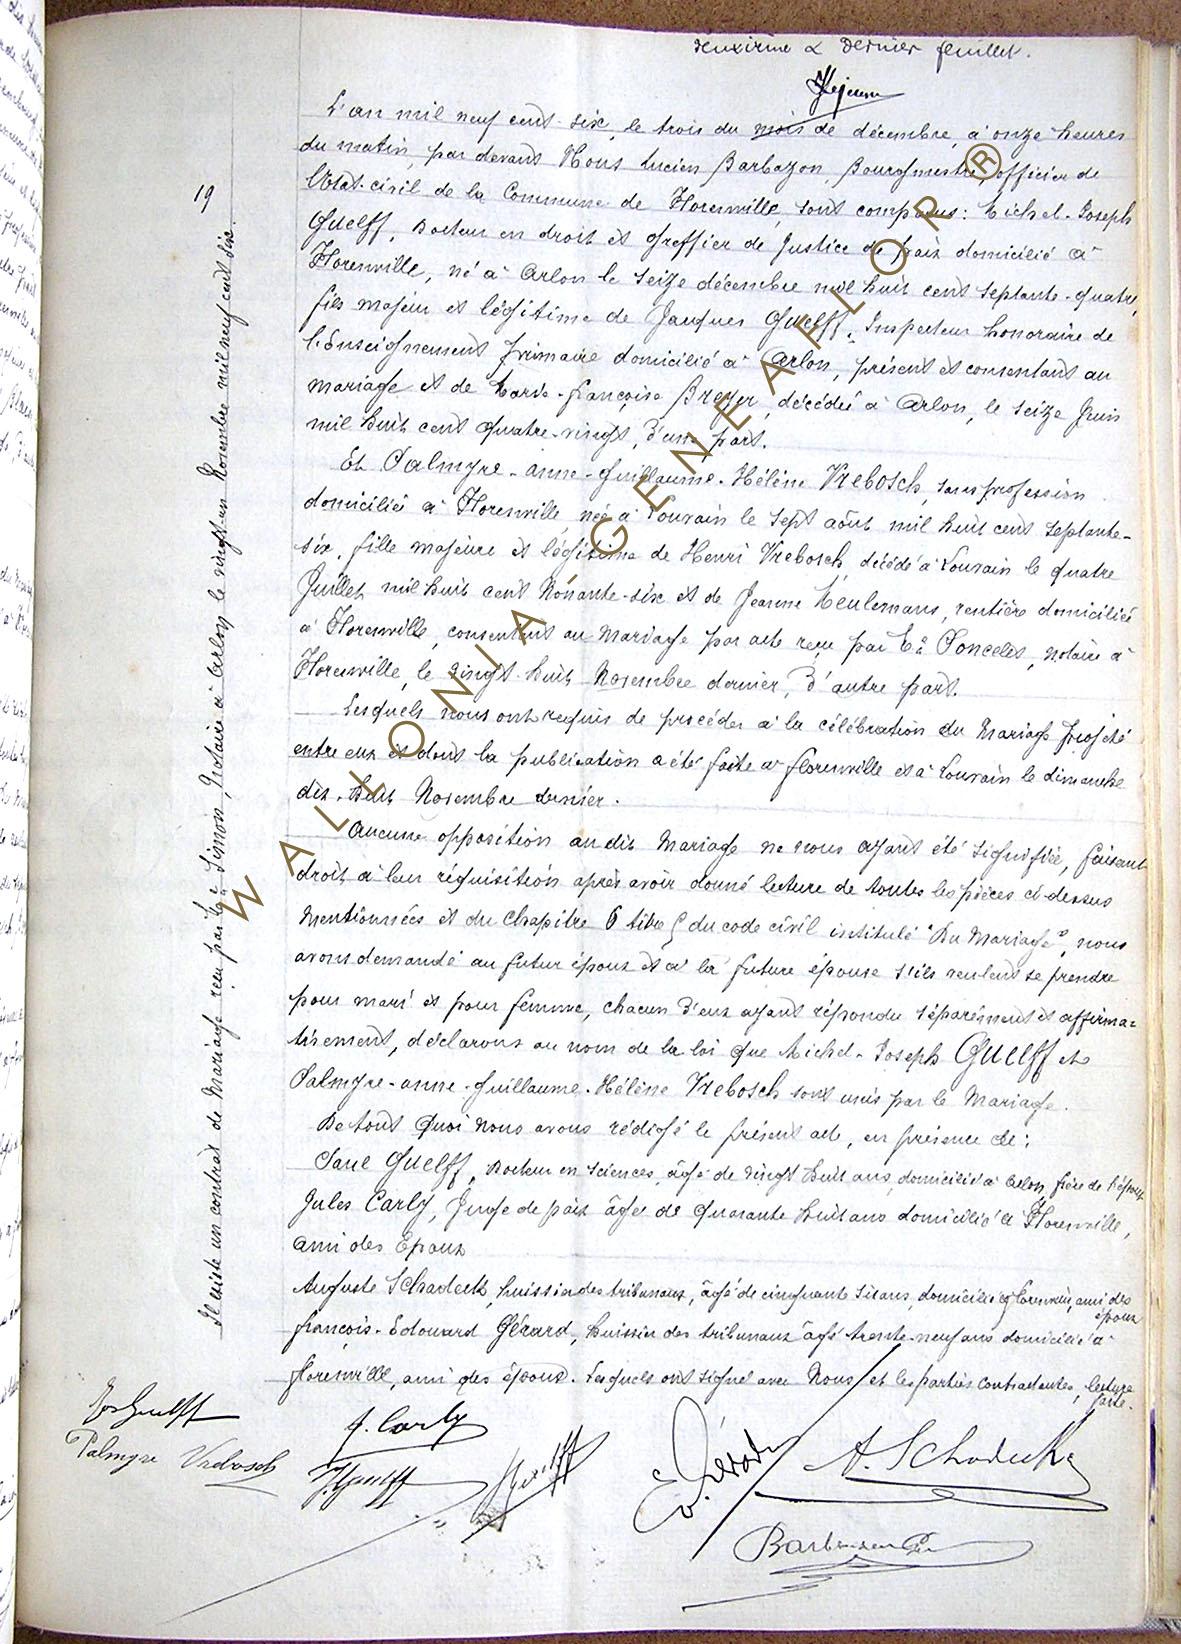 deuxième & dernier feuillet.
19
L'an mil neuf cent six, le trois du mois de décembre, à onze heures
du matin, par devant Nous Lucien Barbazon, Bourgmestre, officier de
l'Etat-civil de la Commune de Florenville, sont comparus: Michel-Joseph
Guelff, Docteur en droit et greffier de Justice de paix domicilié à
Florenville, né à Arlon le seize décembre mil huit cent septante-quatre,
fils majeur et légitime de Jacques Guelff, Inspecteur honoraire de
l'Enseignement primaire domicilié à Arlon, présent et consentant au
mariage et de Marie-Françoise Breyer, décédée à Arlon, le seize Juin
mil huit cent quatre-vingt, d'une part.
Et Palmyre-anne-Guillaume-Hélène Vrebosch, sans profession
domiciliée à Florenville, née à Louvain le sept août mil huit cent septante-
six, fille majeure et légitime de Henri Vrebosch, décédé à Louvain le quatre
Juillet mil huit cent Nonante-six et de Jeanne Meulemans, rentière domiciliée
à Florenville, consentant au mariage par acte reçu par Me Poncelet, notaire à
Florenville, le vingt-huit Novembre dernier, d'autre part.
Lesquels nous ont requis de procéder à la célébration du Mariage projeté
entre eux et dont la publication a été faite à florenville et à Louvain le dimanche
dix-huit Novembre dernier.
Aucune opposition au dit Mariage ne nous ayant été signifiée, faisant
droit à leur réquisition après avoir donné lecture de toutes les pièces ci-dessus
Mentionnées et du Chapitre 6 titre 5 du code civil intitulé "Du Mariage", nous
avons demandé au futur époux et à la future épouse s'ils veulent se prendre
pour mari et pour femme, chacun d'eux ayant répondu séparément et affirma=
tivement, déclarons au nom de la loi que Michel-Joseph Guelff et
Palmyre-anne-Guillaume-Hélène Vrebosch sont unis par le Mariage.
De tout Quoi Nous avons rédigé le présent acte, en présence de:
Paul Guelff, Docteur en sciences, âgé de vingt huit ans, domicilié à Arlon, frère de l'époux
Jules Carly, Juge de paix âgé de Quarante huit ans domicilié à Florenville,
ami des Epoux
Auguste Schadeck, huissier des tribunaux, âgé de cinquante six ans, domicilié à florenville, ami des
époux
françois-Edouard Gérard, huissier des tribunaux âgé trente-neuf ans domicilié à
florenville, ami des époux. Lesquels ont signé avec Nous et les parties contractantes, lecture
faite.
Il existe un contrat de Mariage reçu par Me Simon, Notaire à Arlon le vingt un Novembre mil neuf cent six.
Jos Guelff
Palmyre Vrebosch
J. Carly
J. Guelff
Guelff
Ed. Gérard
A. Schadeck
Barbazon
WALLONIA GENEAFLOR ®